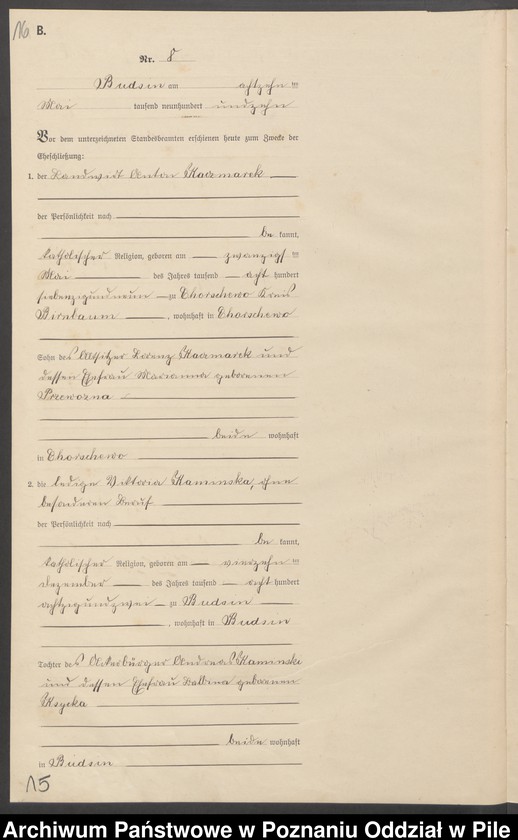 16 B.
Nr. 8
Budsin am achtzehn ten
Mai tausend neunhundert undzehn
Vor dem unterzeichneten Standesbeamten erschienen heute zum Zwecke der
Eheschließung:
1. der Landwirt Anton Kaczmarek
der Persönlichkeit nach
be kannt,
katholischer Religion, geboren am zwanzigs ten
Mai des Jahres tausend acht hundert
siebenzigundneun zu Chorschewo Kreis
Birnbaum, wohnhaft in Chorschewo
Sohn des Altsitzer Lorenz Kaczmarek und
dessen Ehefrau Marianna geborenen
Przewozna
beide wohnhaft
in Chorschewo
2. die ledige Viktoria Kaminska, ohne
besonderen Beruf
der Persönlichkeit nach
be kannt,
katholischer Religion, geboren am vierzehn ten
Dezember des Jahres tausend acht hundert
achtzigundzwei zu Budsin
, wohnhaft in Budsin
Tochter des Ackerbürger Andreas Kaminski
und dessen Ehefrau Balbina geborenen
beide wohnhaft
in Budsin
15
Archiwum Państwowe w Poznaniu Oddział w Pile